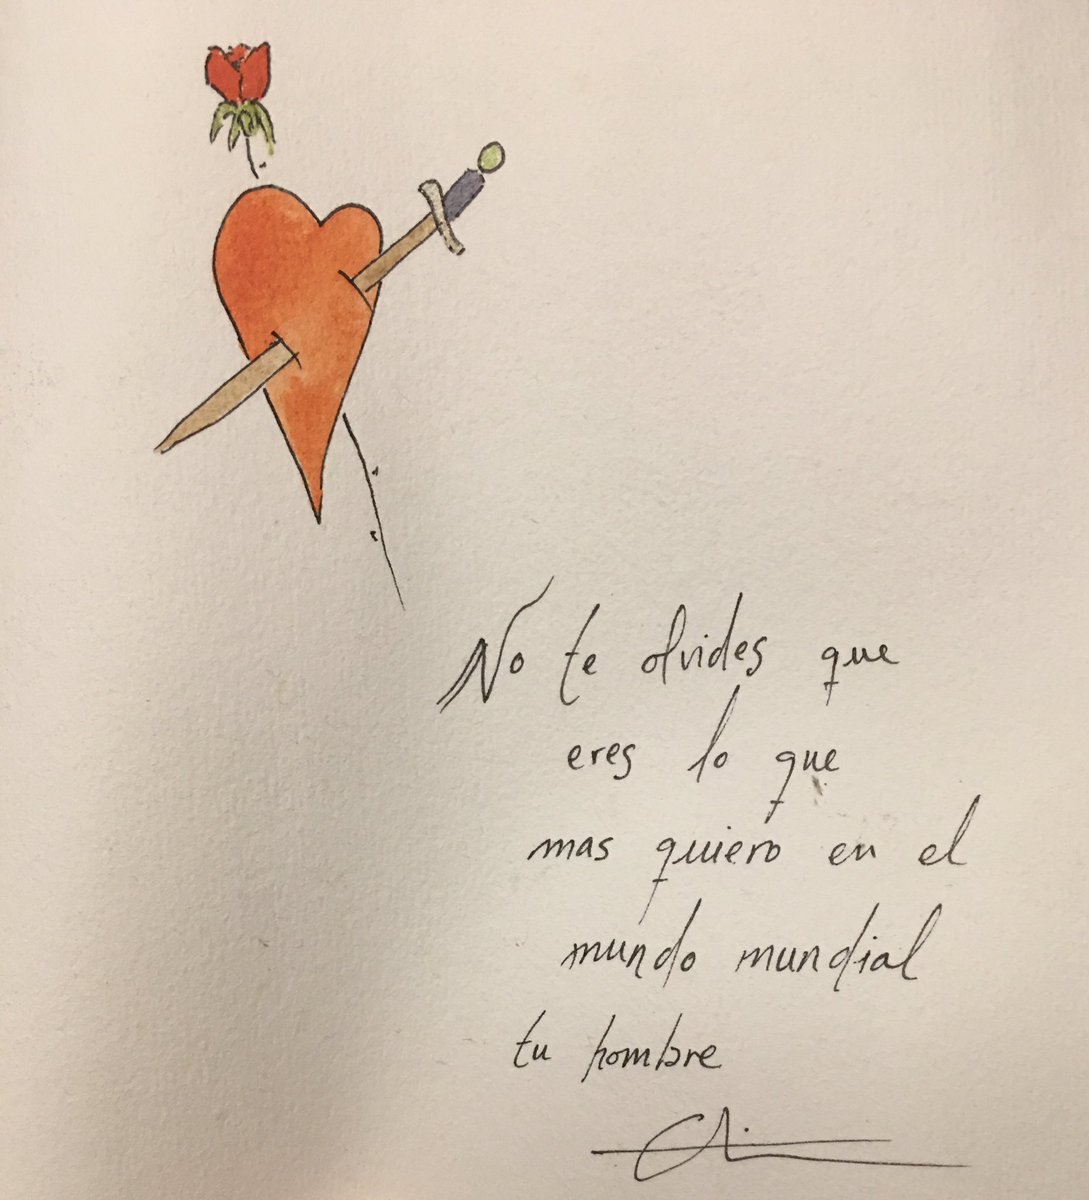 No te olvides que
eres lo que
mas quiero en el
mundo mundial
tu hombre